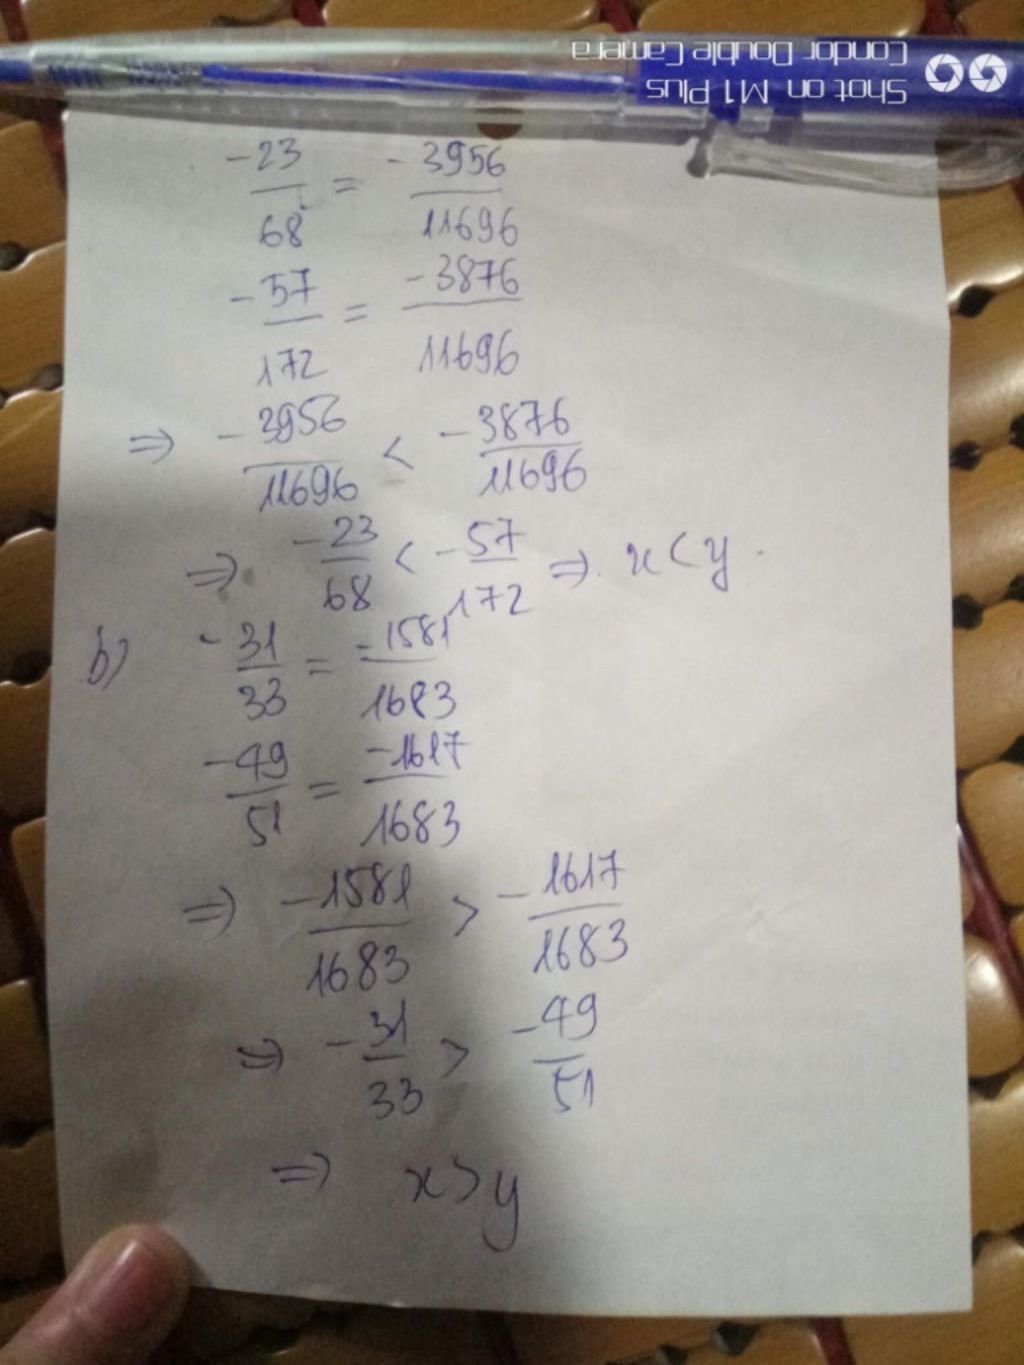 Shot on M1 Plus
Condor Double Camera
-23/68 = -3956/11696
-57/172 = -3876/11696
⇒ -3956/11696 < -3876/11696
⇒ -23/68 < -57/172 ⇒ x < y.
b) -31/33 = -1581/1683
-49/51 = -1617/1683
⇒ -1581/1683 > -1617/1683
⇒ -31/33 > -49/51
⇒ x > y